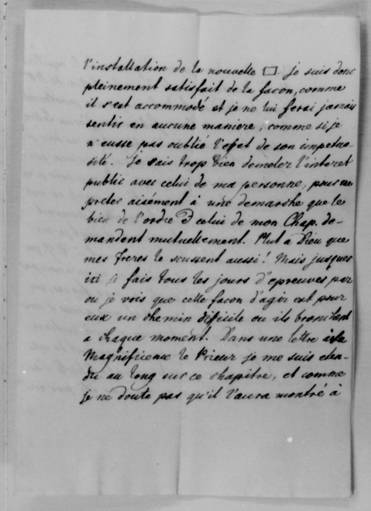 l'installation de la nouvelle □. je suis donc
pleinement satisfait de la façon, comme
il s'est accommodé et je ne lui ferai jamais
sentir en aucune maniere, comme si je
n'eusse pas oublié l'effet de son impetuo
sité. Je sais trop bien demeler l'interet
public avec celui de ma personne, pour me
preter aisément à une demarche que le
bien de l'ordre & celui de mon Chap. de-
mandent mutuellement. Plut a Dieu que
mes freres le scussent aussi! Mais jusques
ici je fais tous les jours d'epreuves par
ou je vois que cette façon d'agir est pour
eux un chemin dificile ou ils bronchent
a chaque moment. Dans une lettre à sa
Magnificence le Prieur je me suis eten-
du au long sur ce chapitre, et comme
je ne doute pas qu'il l'aura montré à